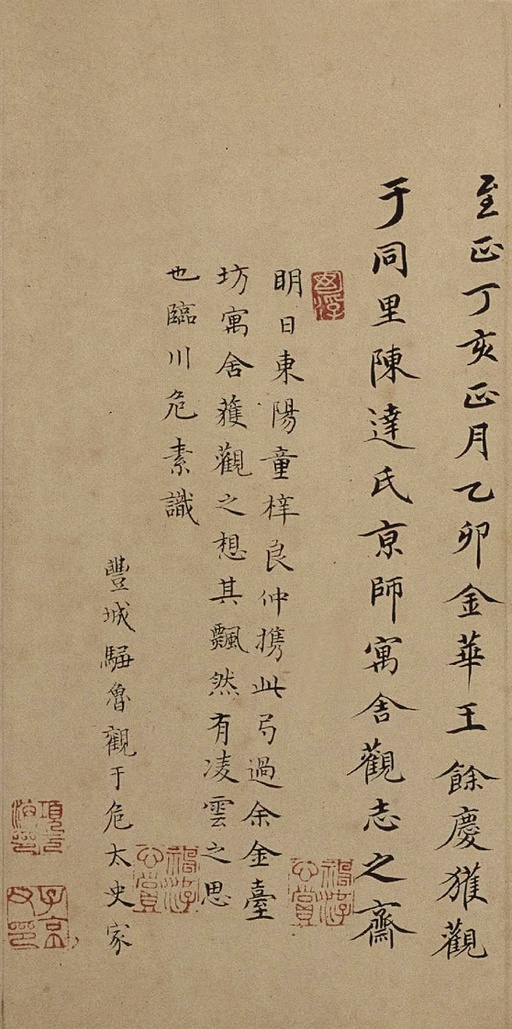 至正丁亥正月乙卯金華王餘慶獲觀
于同里陳達氏京師寓舍觀志之齋
明日東陽童梓良仲携此弓過余金臺
坊寓舍獲觀之想其飄然有凌雲之思
也臨川危素識
豐城騊魯觀于危太史家
子京